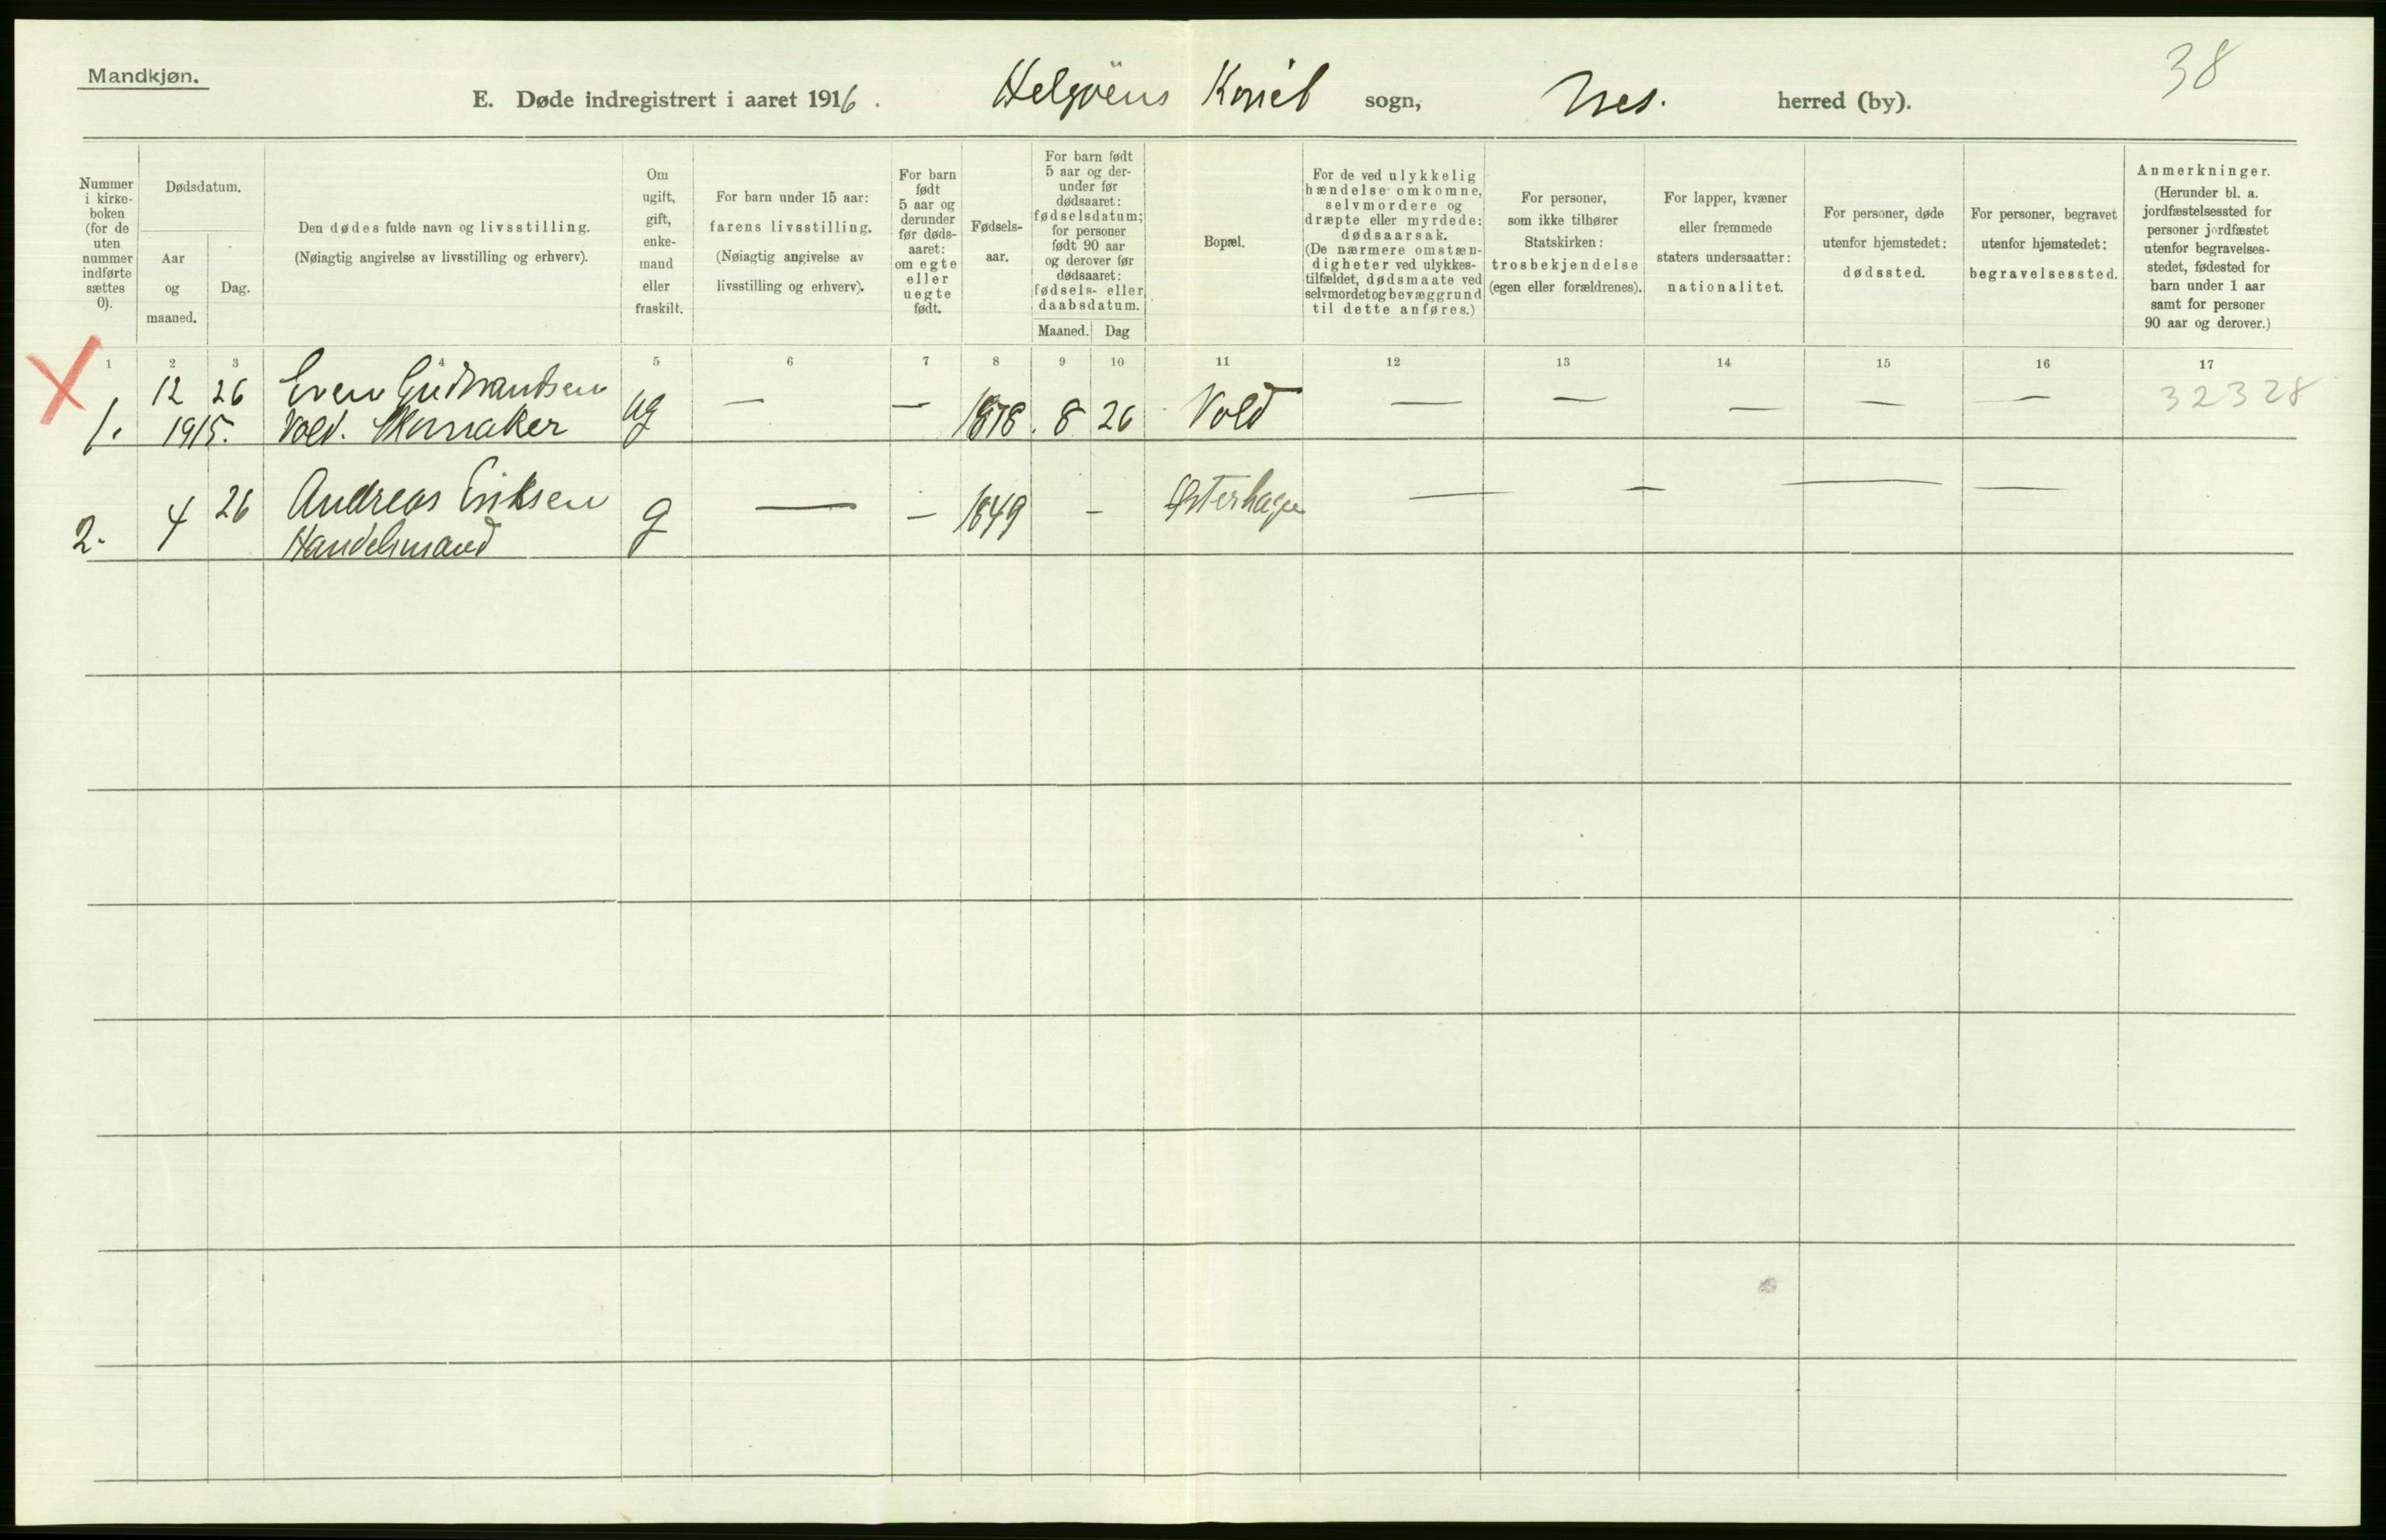 Mandkjøn.
38
E. Døde indregistrert i aaret 1916. Helgøens sogn, Nes. herred (by).
Nummer i kirke- boken (for de uten nummer indførte sættes 0).
Dødsdatum.
Aar og maaned.
Dag.
Den dødes fulde navn og livsstilling.
(Nøiagtig angivelse av livsstilling og erhverv).
Om ugift, gift, enke- mand eller fraskilt.
For barn under 15 aar:
farens livsstilling.
(Nøiagtig angivelse av
livsstilling og erhverv).
For barn født 5 aar og derunder før døds- aaret: om egte eller uegte født.
Fødsels- aar.
For barn født 5 aar og der- under før dødsaaret: fødselsdatum; for personer født 90 aar og derover før dødsaaret: fødsels- eller daabsdatum.
Maaned. Dag
Bopæl.
For de ved ulykkelig hændelse omkomne, selvmordere og dræpte eller myrdede: dødsaarsak.
(De nærmere omstæn- digheter ved ulykkes- tilfældet, dødsmaate ved selvmordet og bevæggrund til dette anføres.)
For personer, som ikke tilhører Statskirken: trosbekjendelse (egen eller forældrenes).
For lapper, kvæner eller fremmede staters undersaatter: nationalitet.
For personer, døde utenfor hjemstedet: dødssted.
For personer, begravet utenfor hjemstedet: begravelsessted.
Anmerkninger.
(Herunder bl. a. jordfæstelsessted for personer jordfæstet utenfor begravelses- stedet, fødested for barn under 1 aar samt for personer 90 aar og derover.)
1 2 3 4 5 6 7 8 9 10 11 12 13 14 15 16 17
12 26 Even Gudbrandsen
1. 1915. Vold. Skomaker ug — — 1878. 8 26 Vold — — — — — 32328
4 26 Andreas Eriksen
2. Handelsmand g — — 1849 — Østerhagen — — — —